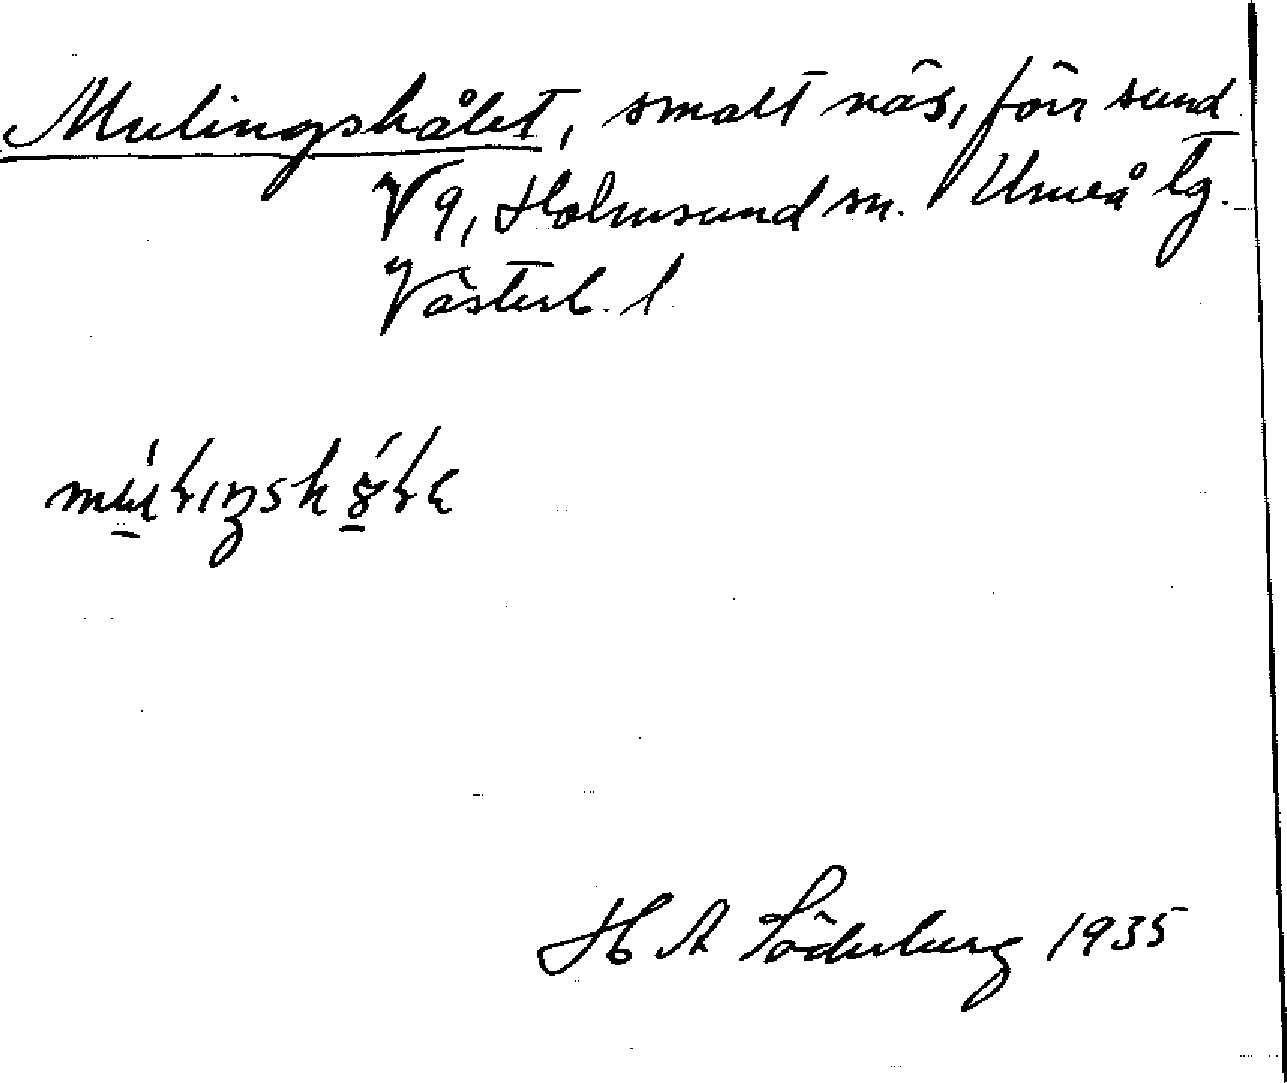 Mulingshålet, smalt näs, förr sund
V 9, Holmsund sn. Umeå tg.
Västerb. l
H A Söderberg 1935